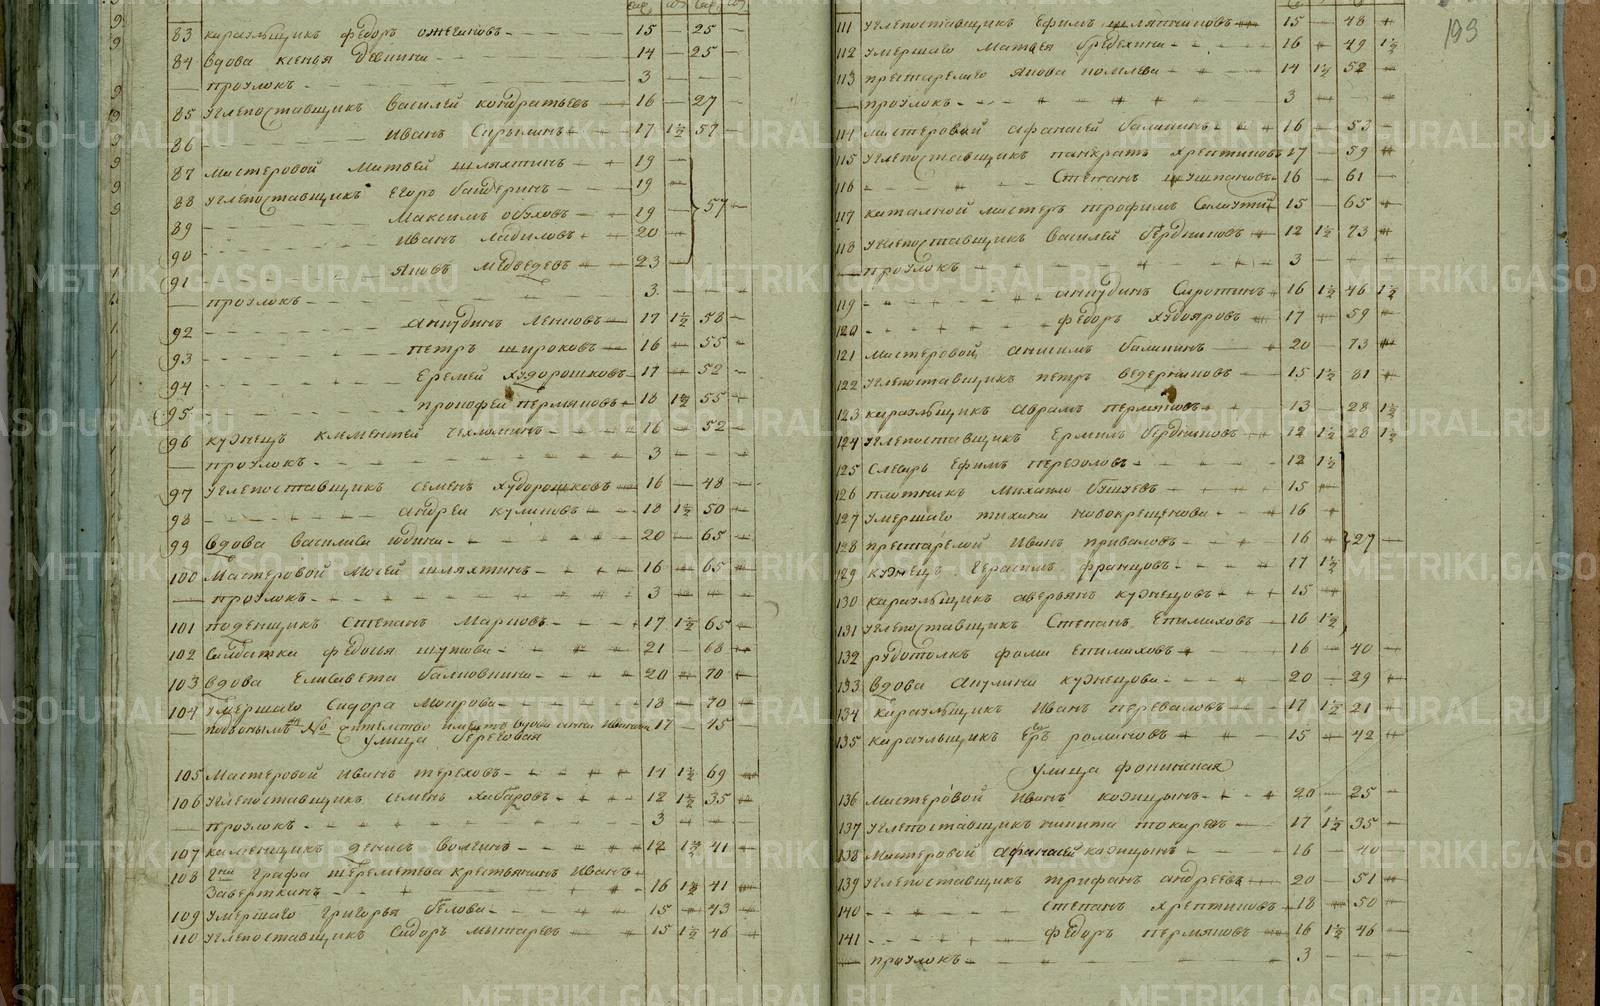 83 караульщикъ федоръ ожегановъ 15 — 25 —
84 вдова ксенья 14 — 25 —
— проулокъ 3 — — —
85 углепоставщикъ василей кондратьевъ 16 — 27 —
86 иванъ 17 1½ 57 —
87 мастеровой матвей шляхтинъ 19 —
88 углепоставщикъ егоръ бандеринъ 19 —
89 максимъ обуховъ 19 — 57 —
90 иванъ ладиловъ 20 —
91 яковъ медведевъ 23 —
— проулокъ 3 — — —
92 анкудинъ 17 1½ 58 —
93 петръ широковъ 16 — 55 —
94 еремей худорошковъ 17 — 52 —
95 прокофей пермяковъ 18 1½ 55 —
96 кузнецъ климентей 16 — 52 —
— проулокъ 3 — — —
97 углепоставщикъ семенъ худорошковъ 16 — 48 —
98 андрей куликовъ 18 1½ 50 —
99 вдова василиса юдина 20 — 65 —
100 мастеровой мосей шляхтинъ 16 — 65 —
— проулокъ 3 — — —
101 поденщикъ степанъ марковъ 17 1½ 65 —
102 салдатка федосья шутова 21 — 68 —
103 вдова елисавета 20 — 70 —
104 умершаго сидора мокрова 18 — 70 —
— 17 — 45 —
улица береговая
105 мастеровой иванъ тереховъ 14 1½ 69 —
106 углепоставщикъ семенъ хабаровъ 12 1½ 35 —
— проулокъ 3 — — —
107 каменщикъ денисъ волгинъ 12 1½ 41 —
108 гна графа шереметева крестьянинъ иванъ
заверткинъ 16 1½ 41 —
109 умершаго григорья белова 15 — 43 —
110 углепоставщикъ сидоръ мытаревъ 15 1½ 46 —
193
111 углепоставщикъ ефимъ шляпниковъ 15 — 48 —
112 умершаго матвея бредехина 16 — 49 1½
113 престарелаго якова 14 1½ 52 —
— проулокъ 3 — — —
114 мастеровой афанасей калининъ 16 — 53 —
115 углепоставщикъ панкратъ хрептиковъ 17 — 59 —
116 степанъ 16 — 61 —
117 каталной мастеръ трофимъ 15 — 65 —
118 углепоставщикъ василей бердниковъ 12 1½ 73 —
— проулокъ 3 — — —
119 анкудинъ сиротинъ 16 1½ 46 1½
120 федоръ худояровъ 17 — 59 —
121 мастеровой анисимъ калининъ 20 — 73 —
122 углепоставщикъ петръ ведерниковъ 15 1½ 81 —
123 караульщикъ аврамъ пермяковъ 13 — 28 1½
124 углепоставщикъ ермилъ бердниковъ 12 1½ 28 1½
125 слесарь ефимъ перезоловъ 12 1½
126 плотникъ михайло бушуевъ 15 —
127 умершаго тихона новокрещенова 16 —
128 престарелой иванъ приваловъ 16 — 27 —
129 кузнецъ герасимъ францовъ 17 1½
130 караульщикъ аверьянъ кузнецовъ 15 —
131 углепоставщикъ степанъ епимаховъ 16 1½
132 рудотолкъ фома епимаховъ 16 — 40 —
133 вдова акулина кузнецова 20 — 29 —
134 караульщикъ иванъ переваловъ 17 1½ 21 —
135 караульщикъ егоръ романовъ 15 — 42 —
улица фокинская
136 мастеровой иванъ казицынъ 20 — 25 —
137 углепоставщикъ никита токаревъ 17 1½ 35 —
138 мастеровой афанасей казицынъ 16 — 40 —
139 углепоставщикъ трифанъ андреевъ 20 — 51 —
140 степанъ хрептиковъ 18 — 50 —
141 федоръ пермяковъ 16 1½ 46 —
— проулокъ 3 — — —
METRIKI.GASO-URAL.RU